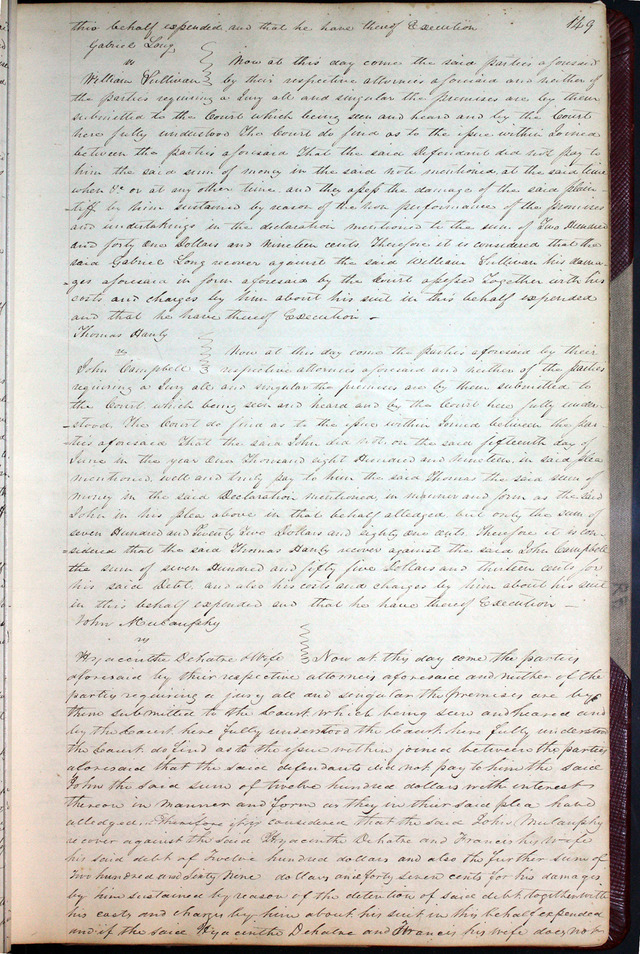 this behalf expended and that he have thereof Execution 149
Gabriel Long
vs Now at this day come the said parties aforesaid
William Sullivan by their respective attornies aforesaid and neither of
the parties requiring a Jury all and singular the premises are by them
submitted to the Court which being seen and heard and by the Court
here fully understood The Court do find as to the issue within Joined
between the parties aforesaid That the said Defendant did not pay to
him the said sum of money in the said note mentioned at the said time
when &c or at any other time and they assess the damage of the said plain-
-tiff by him sustained by reason of the non performance of the promises
and undertakings in the declaration mentioned to the sum of Two Hundred
and forty One Dollars and Nineteen cents Therefore it is considered that the
said Gabriel Long recover against the said William Sullivan his dama-
-ges aforesaid in form aforesaid by the Court assessed Together with his
costs and charges by him about his suit in this behalf expended
and that he have thereof Execution -
Thomas Hanly
vs Now at this day come the parties aforesaid by their
John Campbell respective attornies aforesaid and neither of the parties
requiring a Jury all and singular the premises are by them submitted to
the Court which being seen and heard and by the Court here fully under-
-stood. The Court do find as to the issue within Joined between the par-
-ties aforesaid That the said John did not on the said fifteenth day of
June in the year One Thousand eight Hundred and Nineteen in said plea
mentioned well and truly pay to him the said Thomas the said sum of
money in the said Declaration mentioned in manner and form as the said
John in his plea above in that behalf alledged but only the sum of
seven Hundred and Twenty Two Dollars and eighty one cents. Therefore it is con-
-sidered that the said Thomas Hanly recover against the said John Campbell
the sum of seven Hundred and fifty five Dollars and thirteen cents for
his said Debt, and also his costs and charges by him about his suit
in this behalf expended and that he have thereof Execution -
John Mulanphy
vs
Hyacinthe Dehatre & Wife Now at this day come the parties
aforesaid by their respective attornies aforesaid and neither of the
party requiring a jury all and singular the premises are by
them submitted to the Court which being seen and heared and
by the Court here fully understood the Court here fully understood
the Court do find as to the issue within joined between the parties
aforesaid that the said defendants did not pay to him the said
John the said sum of twelve hundred dollars with interest
thereon in manner and form as they in their said plea have
alledged Therefore it is considered that the said John Mulanphy
recover against the said Hyacinthe Dehatre and Francis his wife
his said debt of twelve hundred dollars and also the further sum of
Two hundred and Sixty Nine dollars and forty seven cents for his damages
by him sustained by reason of the detention of said debt, together with
his costs and charges by him about his suit in this behalf expended
and if the said Hyacinthe Dehatre and Francis his wife does not